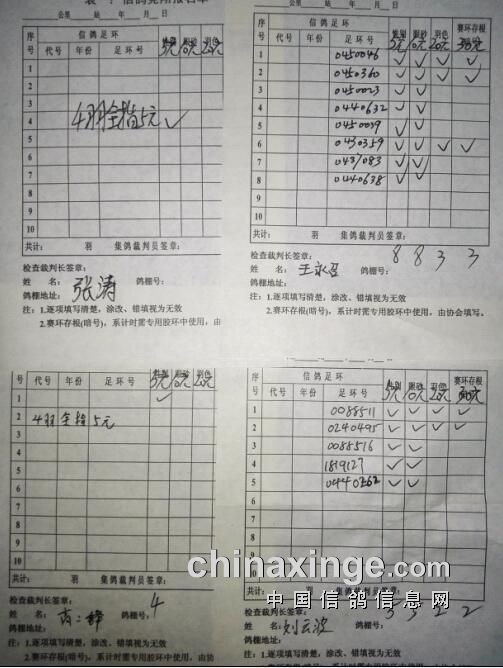 公里 站 年 月 日
序号 信鸽足环 性别 眼砂 羽色
代号 年份 足环号 5元 10元 20元
1
2
3
4 4羽全指5元 ✓
5
6
7
8
9
10
共计: 羽 集鸽裁判员签章:
检查裁判长签章:
姓 名: 张涛 鸽棚号:
鸽棚地址:
注:1.逐项填写清楚,涂改、错填视为无效
2.赛环存根(暗号),系计时需专用胶环中使用,由
公里 站 年 月 日
序号 信鸽足环 性别 眼砂 羽色 赛环存根
代号 年份 足环号 5元 10元 20元 30元
1 0450046 ✓ ✓ ✓ ✓
2 0450360 ✓ ✓ ✓ ✓
3 0450023 ✓ ✓
4 0440632 ✓ ✓
5 0450039 ✓ ✓
6 0430359 ✓ ✓ ✓ ✓
7 0437083 ✓ ✓
8 0440638 ✓ ✓
9
10
共计: 羽 集鸽裁判员签章:
检查裁判长签章: 8 8 3 3
姓 名: 王永召 鸽棚号:
鸽棚地址:
注:1.逐项填写清楚,涂改、错填视为无效
2.赛环存根(暗号),系计时需专用胶环中使用,由协会填写。
序号 性别 眼砂 羽色
代号 年份 足环号 5元 10元 20元
1 ✓
2 4羽全指5元
3
4
5
6
7
8
9
10
共计: 羽 集鸽裁判员签章:
检查裁判长签章: 4
姓 名: 鸽棚号:
鸽棚地址:
注:1.逐项填写清楚、涂改、错填视为无效
2.赛环存根(暗号),系计时需专用胶环中使用,由协
序号 信鸽足环 性别 眼砂 羽色 赛环存根
代号 年份 足环号 5元 10元 20元 30元
1 0088511 ✓ ✓ ✓ ✓
2 0240495 ✓ ✓ ✓ ✓
3 0088516 ✓ ✓
4 1819127 ✓ ✓
5 0440262 ✓ ✓
6
7
8
9
10
共计: 羽 集鸽裁判员签章:
检查裁判长签章: 5 5 2 2
姓 名: 刘云波 鸽棚号:
鸽棚地址:
注:1.逐项填写清楚、涂改、错填视为无效
chinaxinge.com
中国信鸽信息网